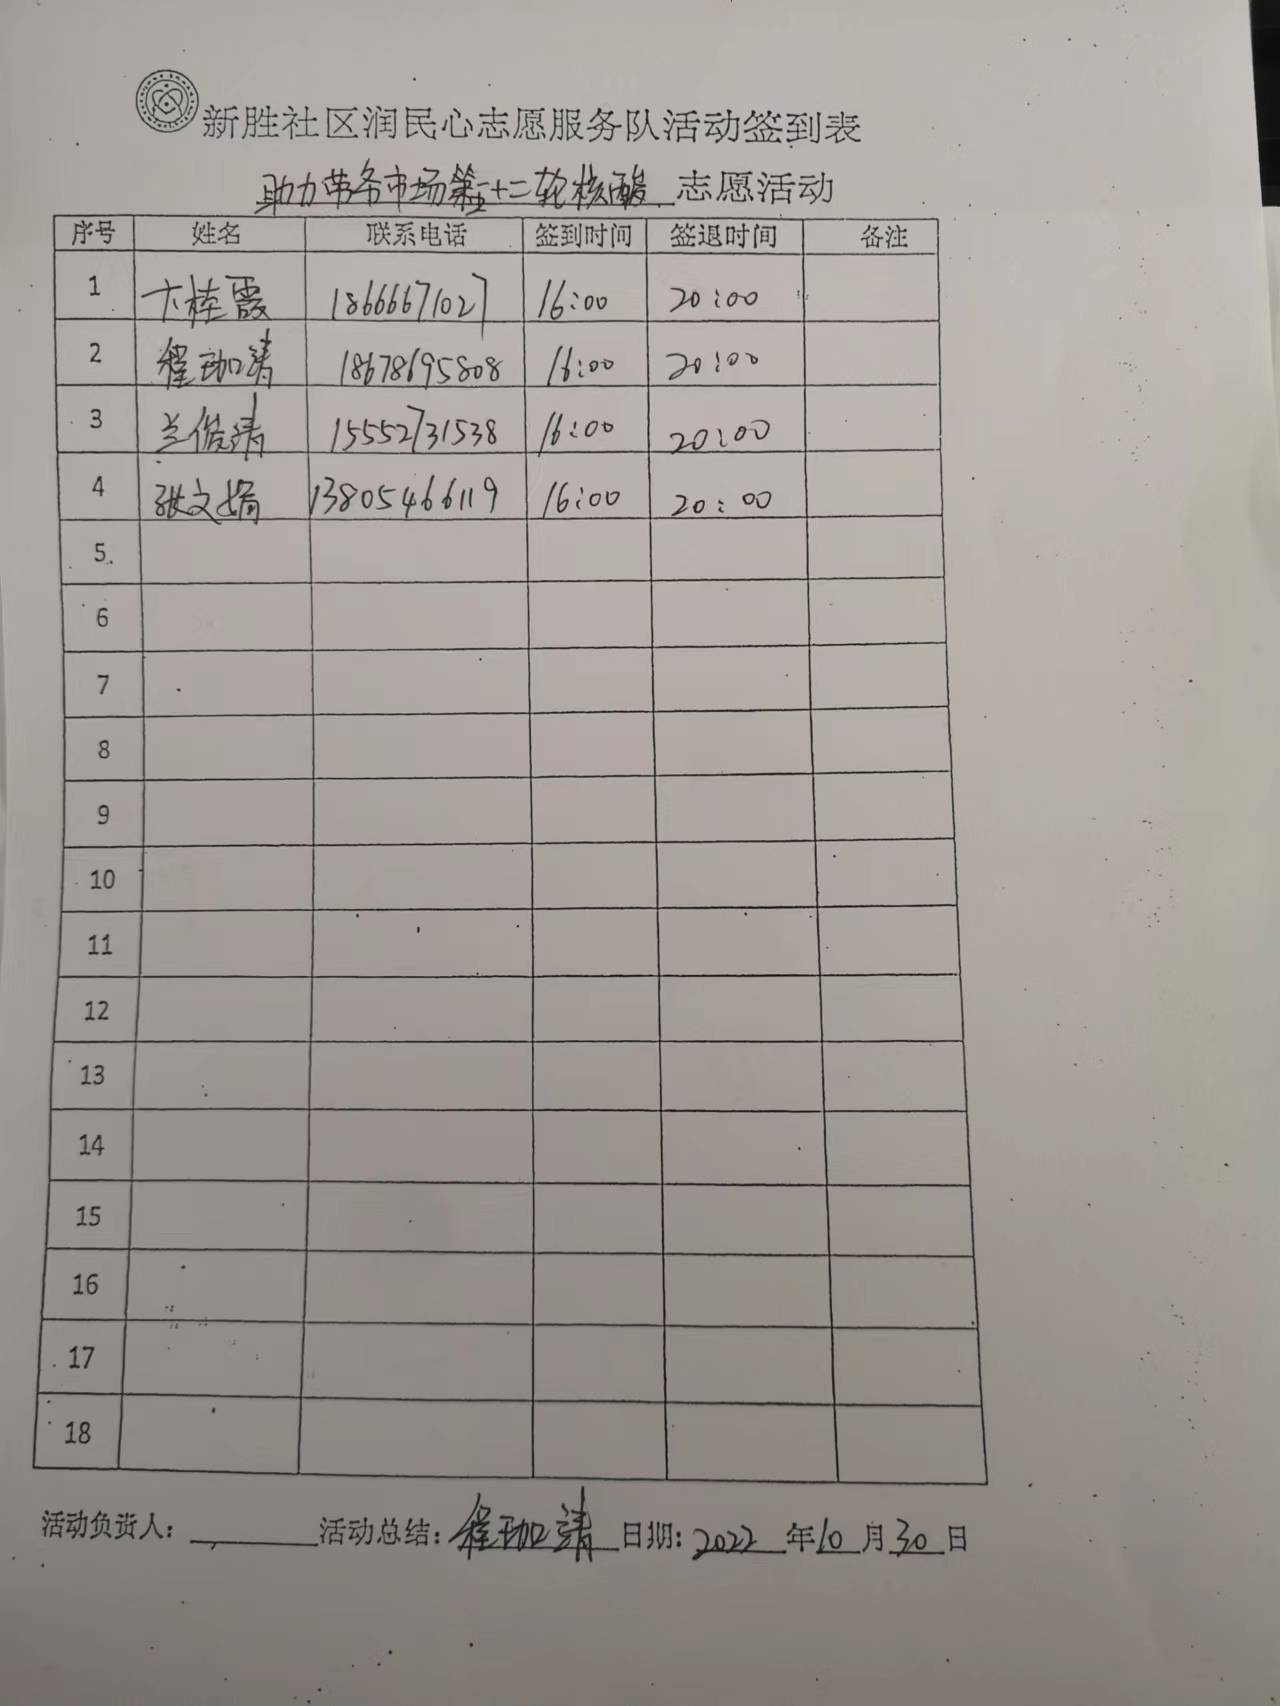 新胜社区润民心志愿服务队活动签到表
助力劳务市场第五十二轮核酸 志愿活动
序号 姓名 联系电话 签到时间 签退时间 备注
1 卞桂霞 18666671027 16:00 20:00
2 程珈清 18678695808 16:00 20:00
3 兰俊清 15552731538 16:00 20:00
4 张文娟 13805466119 16:00 20:00
5
6
7
8
9
10
11
12
13
14
15
16
17
18
活动负责人: 活动总结: 程珈清 日期: 2022 年 10 月 30 日